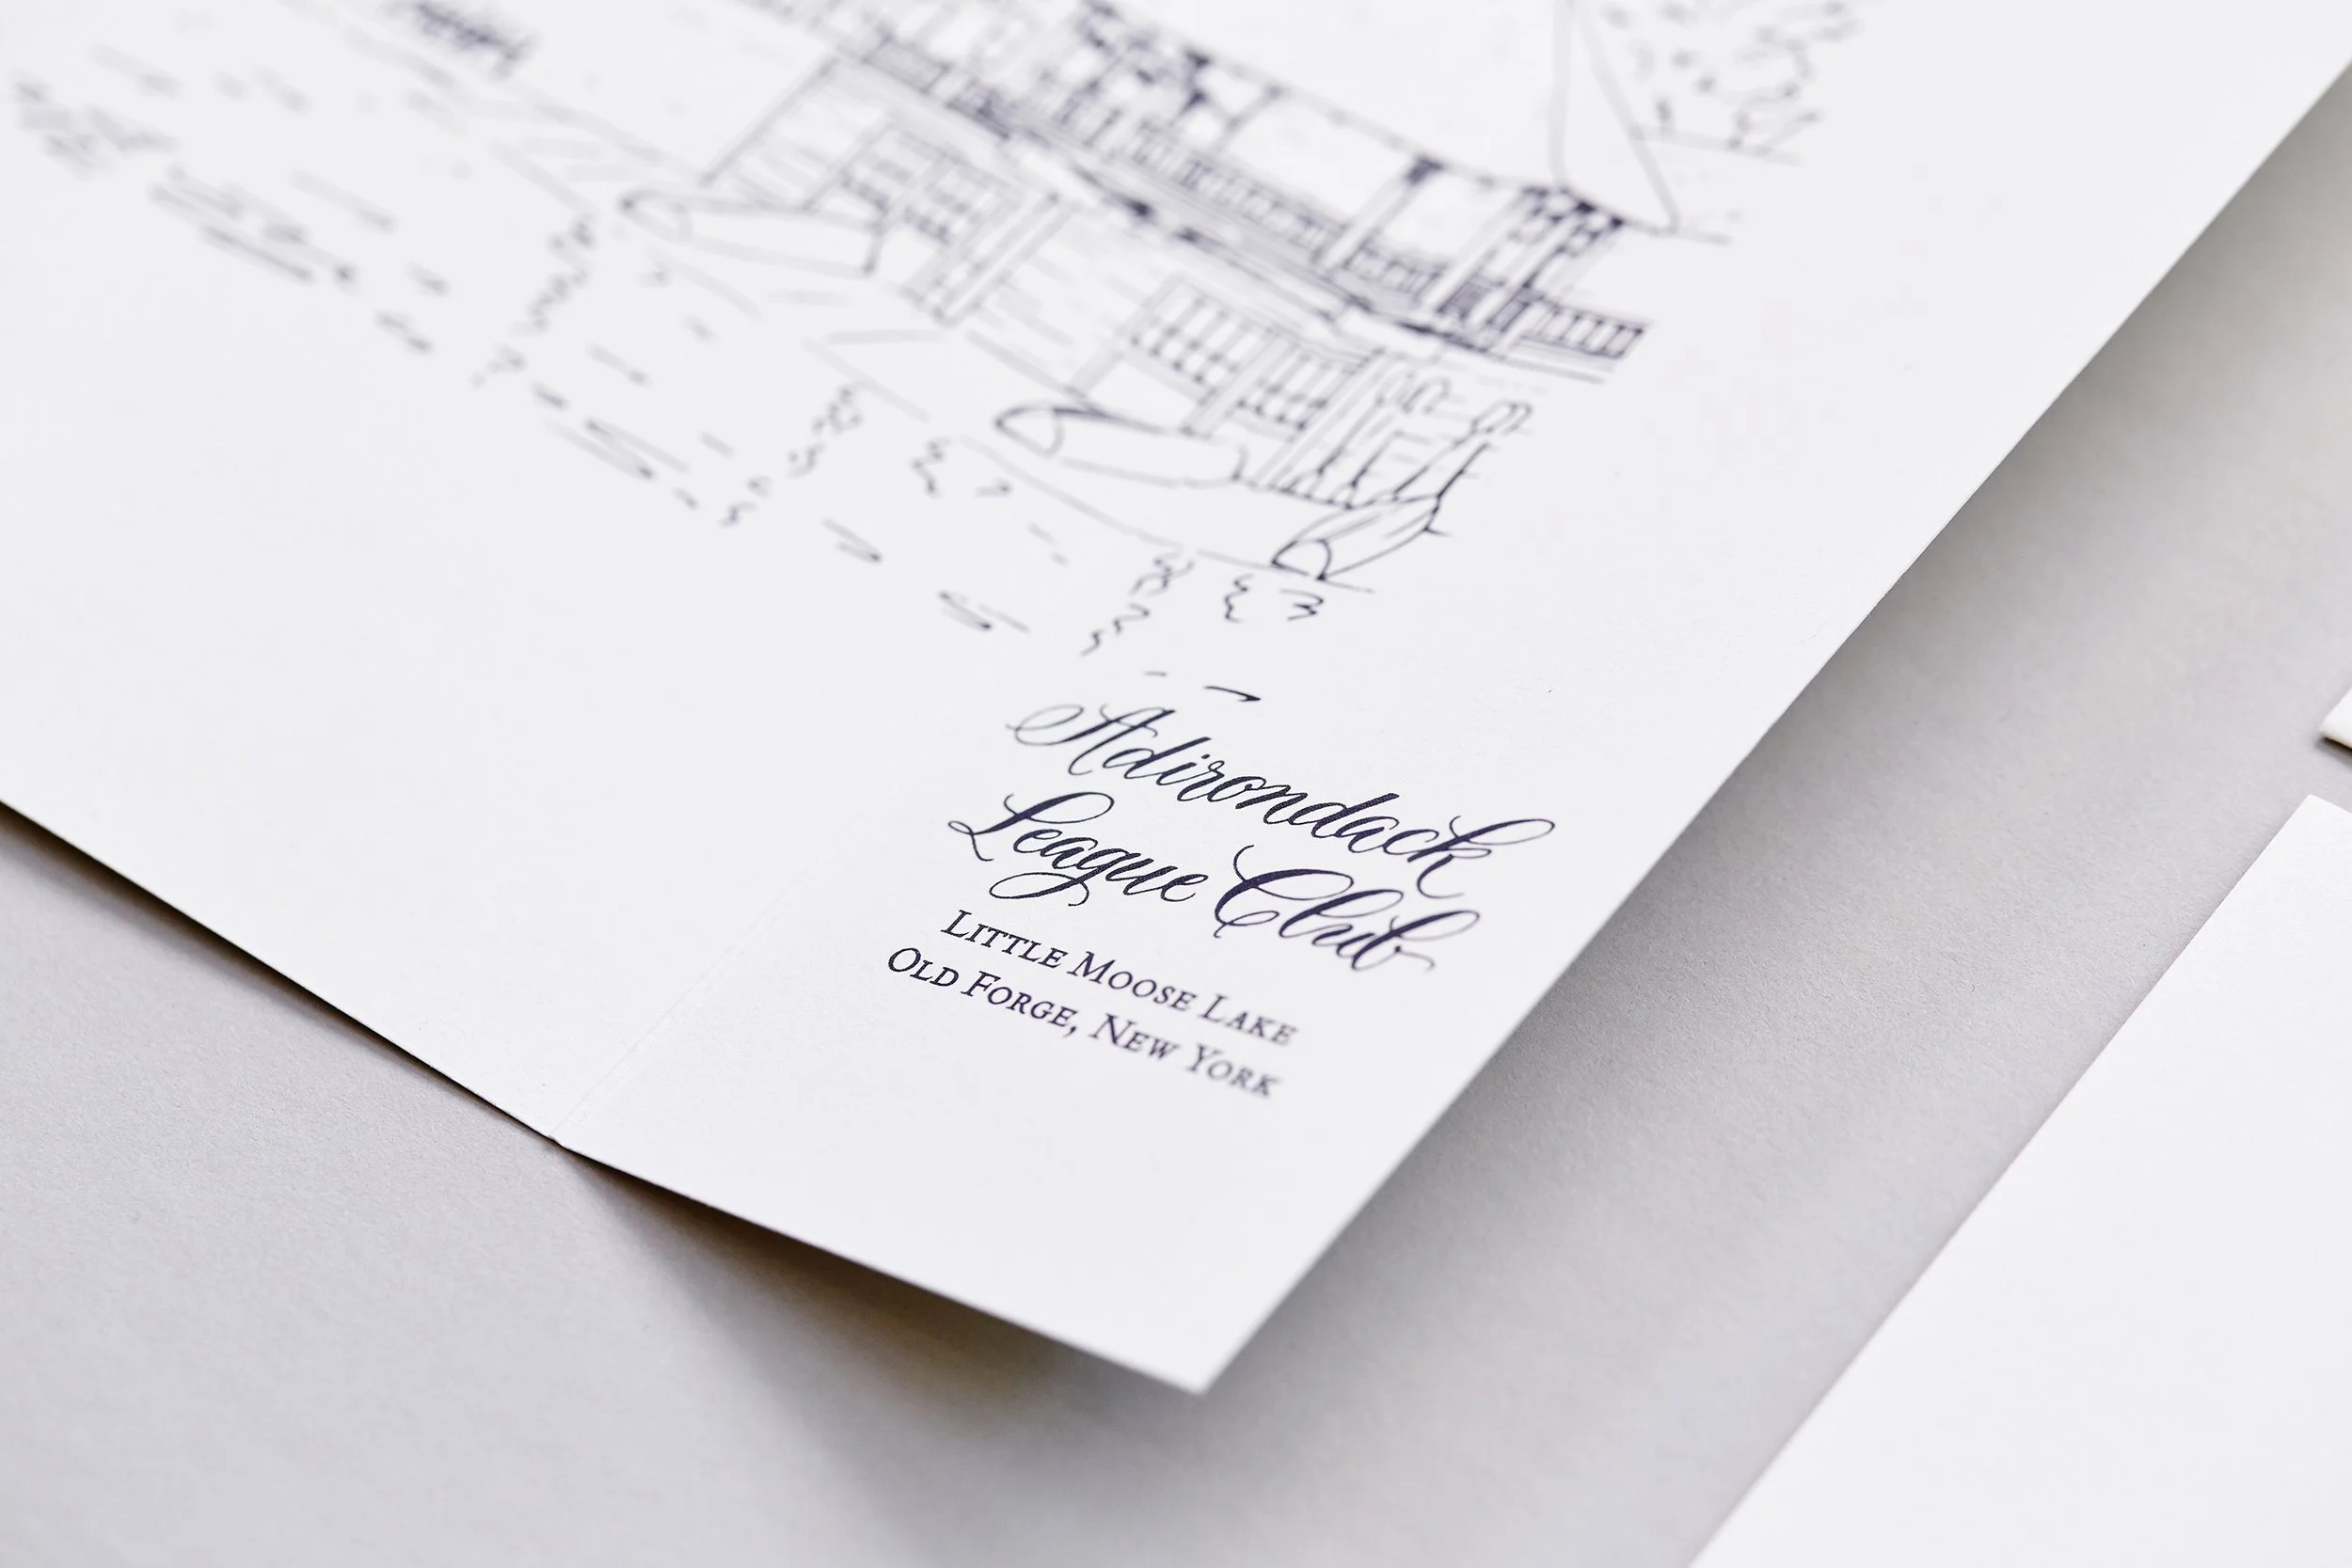 Adirondack
League Club
Little Moose Lake
Old Forge, New York